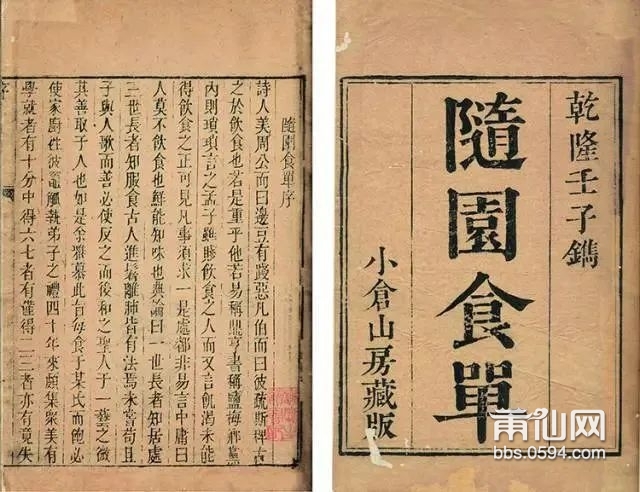 乾隆壬子鐫
隨園食單
小倉山房藏版
隨園食單序
詩人美周公而曰邊豆有踐惡凡伯而曰彼疏斯稗古
之於飲食也若是重乎他若易稱鼎亨書稱鹽梅鄉黨
內則瑣瑣言之孟子雖賤飲食之人而又言飢渴未能
得飲食之正可見凡事須求一是處都非易言中庸曰
人莫不飲食也鮮能知味也典論曰一世長者知居處
三世長者知服食古人進鬐離肺皆有法焉未嘗苟且
子與人歌而善必使反之而後和之聖人于一藝之微
其善取于人也如是余雅慕此旨每食于某氏而飽必
使家廚往彼竈觚執弟子之禮四十年來頗集眾美有
學就者有十分中得六七者有僅得二三者亦有竟失
莆仙网
bbs.0594.com